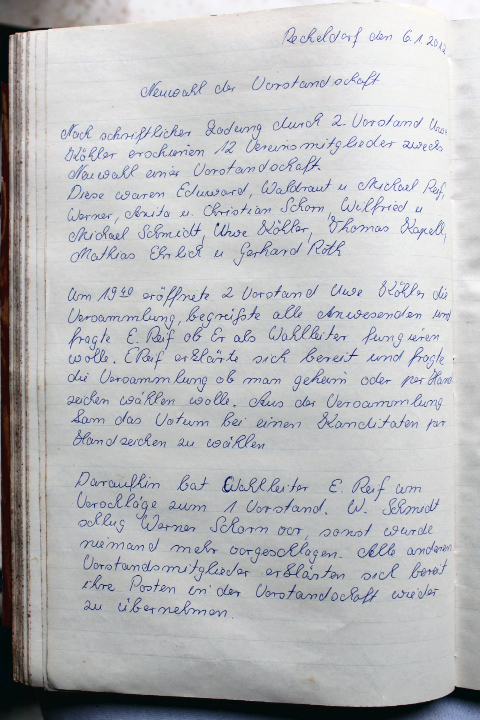 Recheldorf den 6.1.2012
Neuwahl der Vorstandschaft
Nach schriftlicher Ladung durch 2. Vorstand Uwe
Köhler erschienen 12 Vereinsmitglieder zwecks
Neuwahl einer Vorstandschaft.
Diese waren Eduward, Waldraut u Michael Reif,
Werner, Anita u. Christian Schorn, Wilfried u
Michael Schmidt, Uwe Köhler, Thomas Kapell,
Mathias Ehrlich u Gerhard Roth
Um 19 40 eröffnete 2 Vorstand Uwe Köhler die
Versammlung, begrüßte alle Anwesenden und
fragte E. Reif ob Er als Wahlleiter fungieren
wolle. E Reif erklärte sich bereit und fragte
die Versammlung ob man geheim oder per Hand
zeichen wählen wolle. Aus der Versammlung
kam das Votum bei einen Kanditaten per
Handzeichen zu wählen
Daraufhin bat Wahlleiter E. Reif um
Vorschläge zum 1 Vorstand. W. Schmidt
schlug Werner Schorn vor, sonst wurde
niemand mehr vorgeschlagen. Alle anderen
Vorstandsmitglieder erklärten sich bereit
ihre Posten in der Vorstandschaft wieder
zu übernehmen.